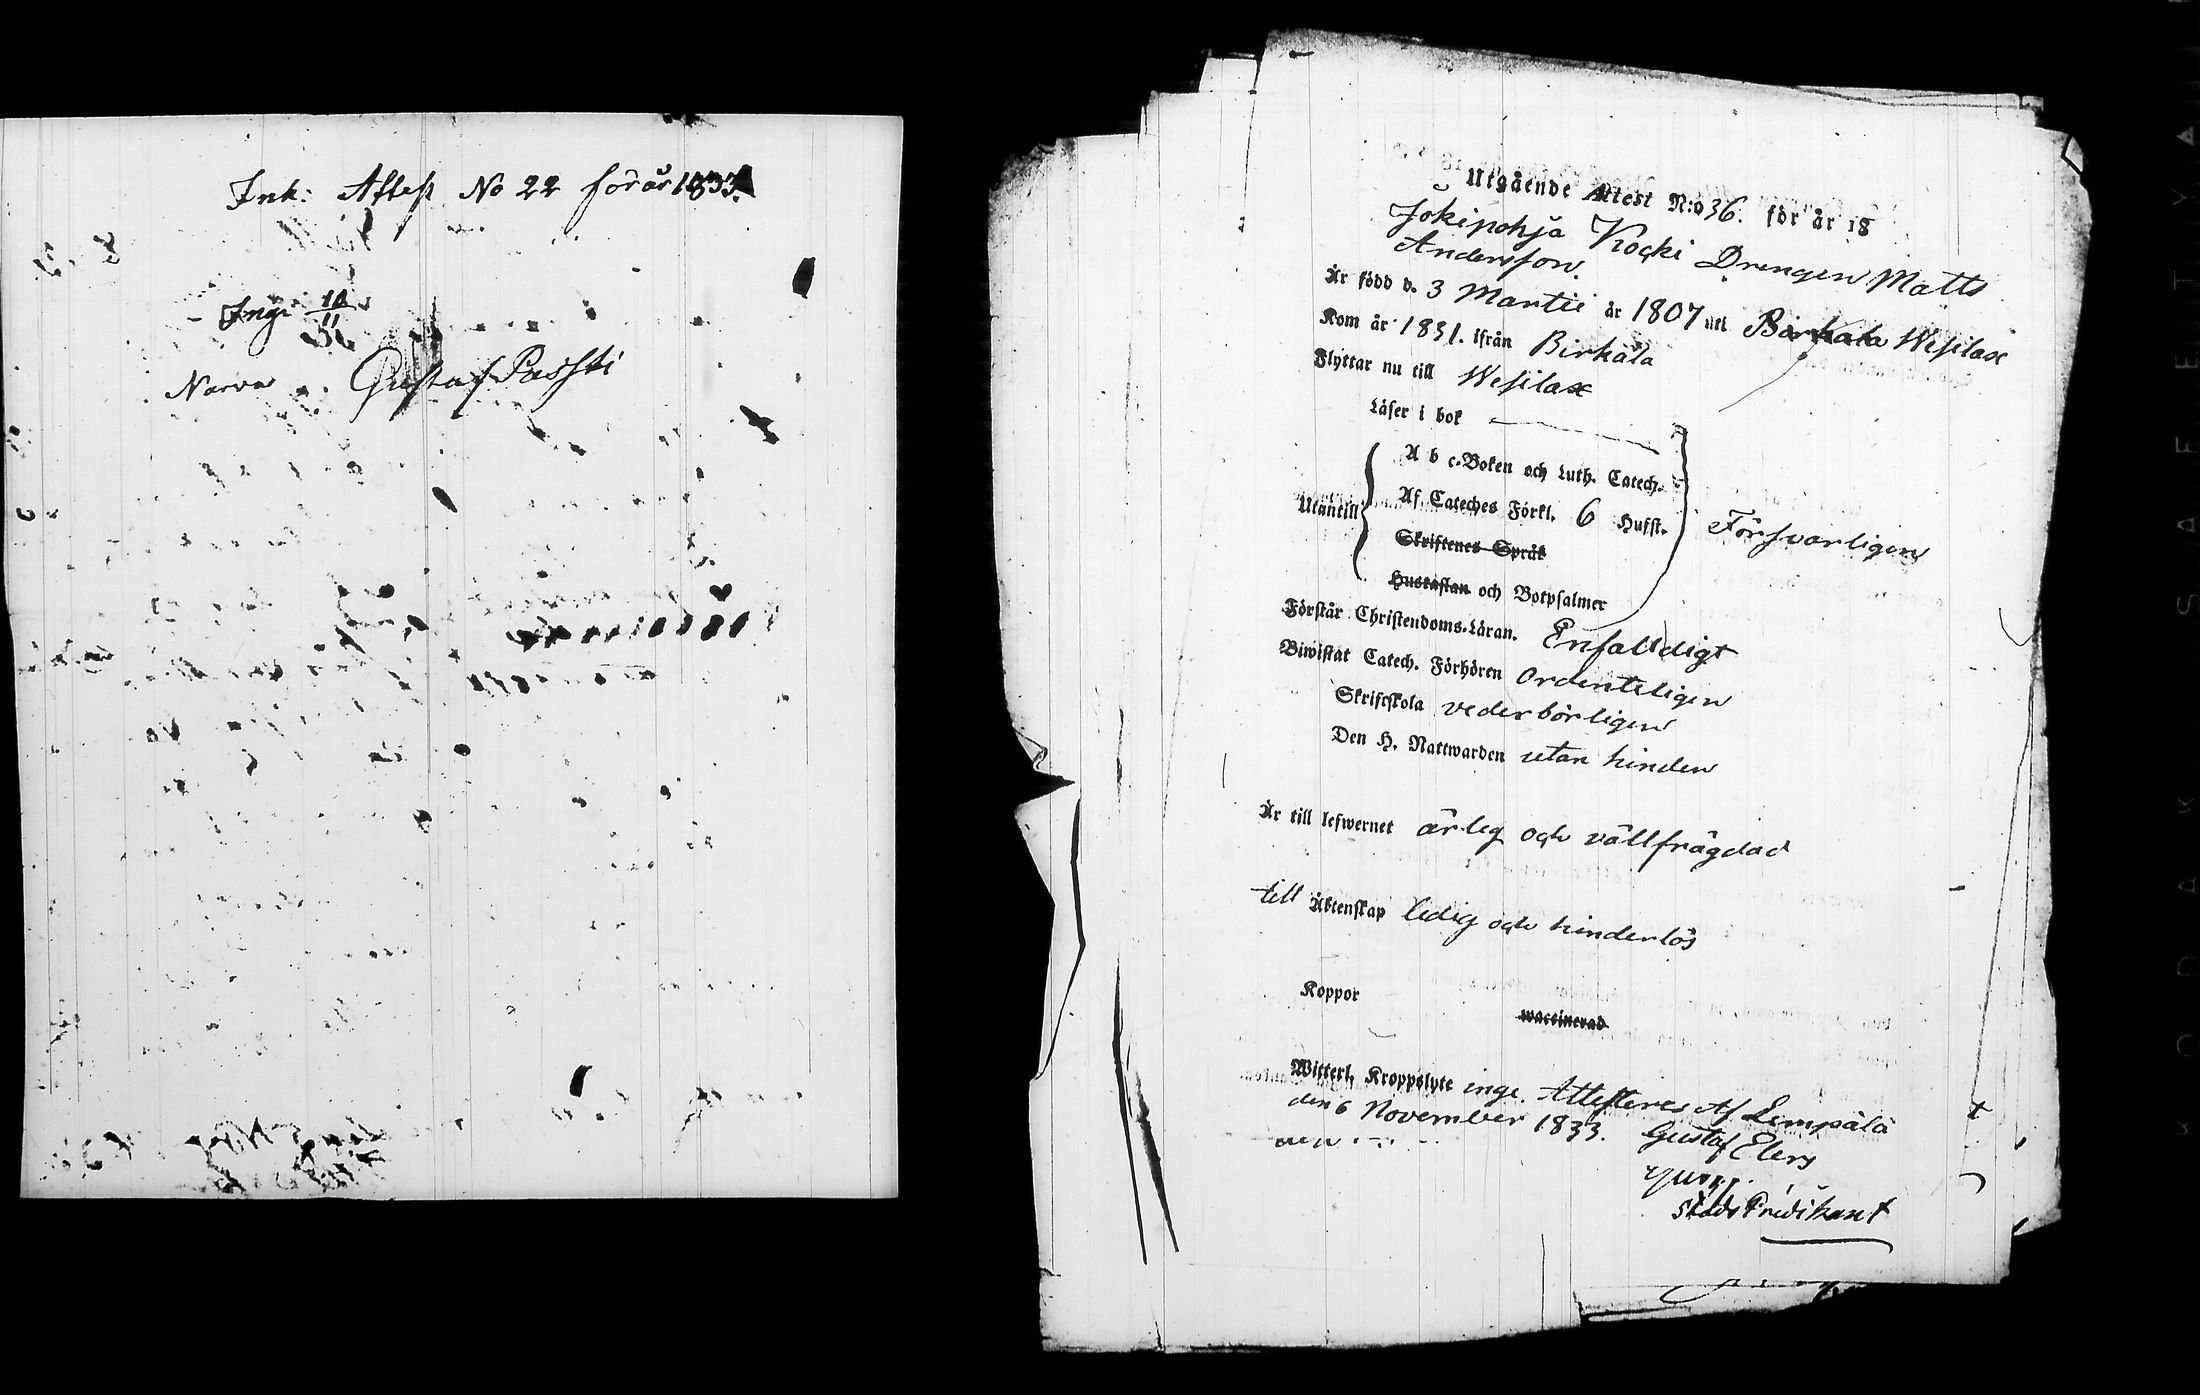 Ink: Attest No 22 för år 1833.
Ing: 10/11
Narva Gustaf Passti
Utgående Attest N:o 36. för år 18
Jokipohja Kocki Drengen Matts
Andersson.
Är född d. 3 Martii år 1807 uti Birkala Wesilax
Kom år 1831. ifrån Birkala
Flyttar nu till Wesilax
Läser i bok
A b c-Boken och Luth. Catech.
Utantill Af Cateches Förkl. 6 Hufst. Försvarligen
Skriftenes Språk
Hustaflan och Botpsalmer
Förstår Christendoms-Läran. Enfaldigt
Biwistat Catech. Förhören Ordenteligen
Skriftskola vederbörligen
Den H. Nattwarden utan hinder
Är till lefwernet ärlig och vällfrägdad
till Äktenskap ledig och hinderlös
Koppor
waccinerad
Witterl. Kroppslyte inge. Attesteres Af Lempälä
den 6 November 1833. Gustaf Elers
Stads Predikant
KODAK SAFETY